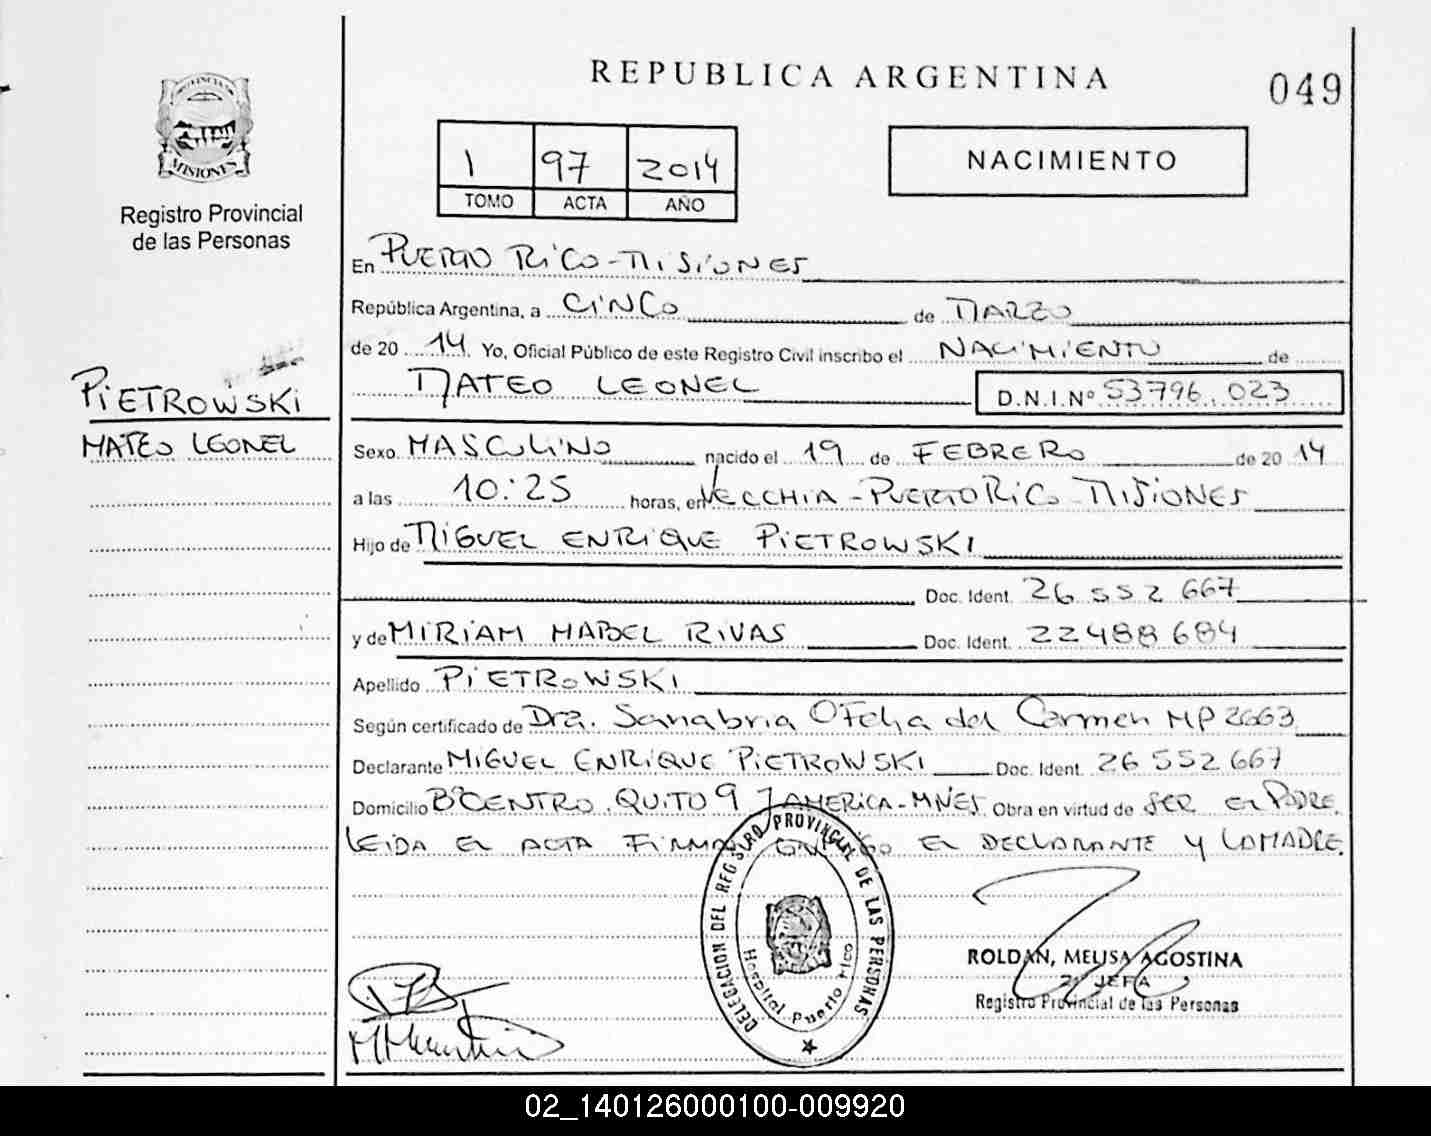 REPUBLICA ARGENTINA
049
PROVINCIA
MISIONES
Registro Provincial
de las Personas
1 97 2014
TOMO ACTA AÑO
NACIMIENTO
En PUERTO RICO - MISIONES
República Argentina, a CINCO de MARZO
de 20 14 Yo, Oficial Público de este Registro Civil inscribo el NACIMIENTO de
MATEO LEONEL D.N.I.Nº 53796.023
PIETROWSKI
MATEO LEONEL
Sexo MASCULINO nacido el 19 de FEBRERO de 20 14
a las 10:25 horas, en VECCHIA - PUERTO RICO - MISIONES
Hijo de MIGUEL ENRIQUE PIETROWSKI
Doc. Ident. 26 552 667
y de MIRIAM MABEL RIVAS Doc. Ident. 22488684
Apellido PIETROWSKI
Según certificado de Dra. Sanabria Ofelia del Carmen MP 2663
Declarante MIGUEL ENRIQUE PIETROWSKI Doc. Ident. 26 552 667
Domicilio Bº CENTRO. QUITO 9 J AMERICA - MNES. Obra en virtud de SER EL PADRE.
LEIDA EL ACTA FIRMAN CONMIGO EL DECLARANTE Y LA MADRE.
DELEGACION DEL REGISTRO PROVINCIAL DE LAS PERSONAS
Hospital Puerto Rico
ROLDAN, MELISA AGOSTINA
JEFA
Registro Provincial de las Personas
02_140126000100-009920